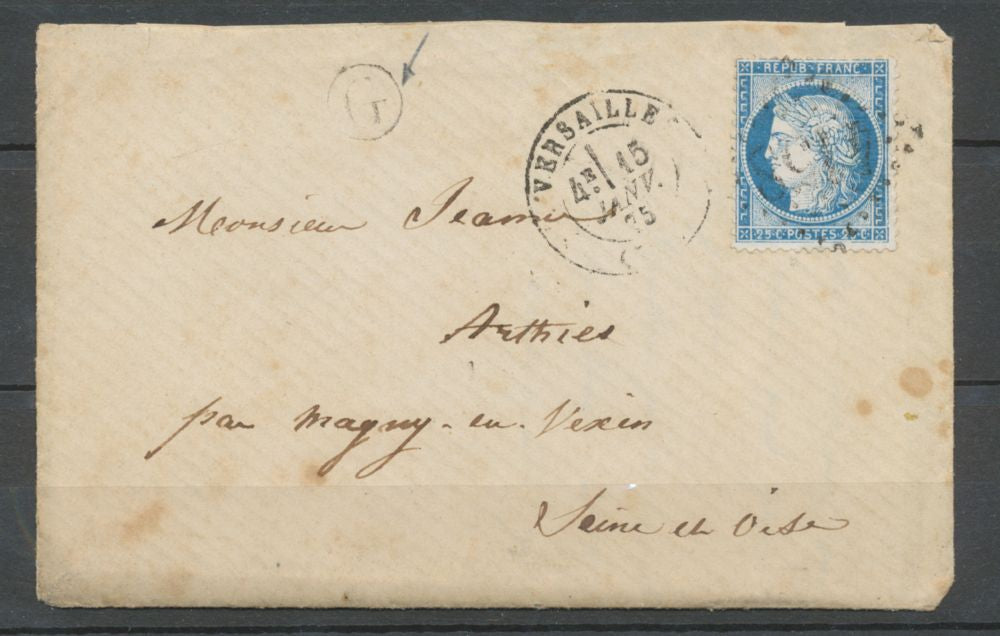 REPUB·FRANC·
25·C·POSTES·25·C
VERSAILLE
4ᴱ/ 15
JANV.
75
Monsieur
Arthies
par Magny-en-Vexin
Seine et Oise